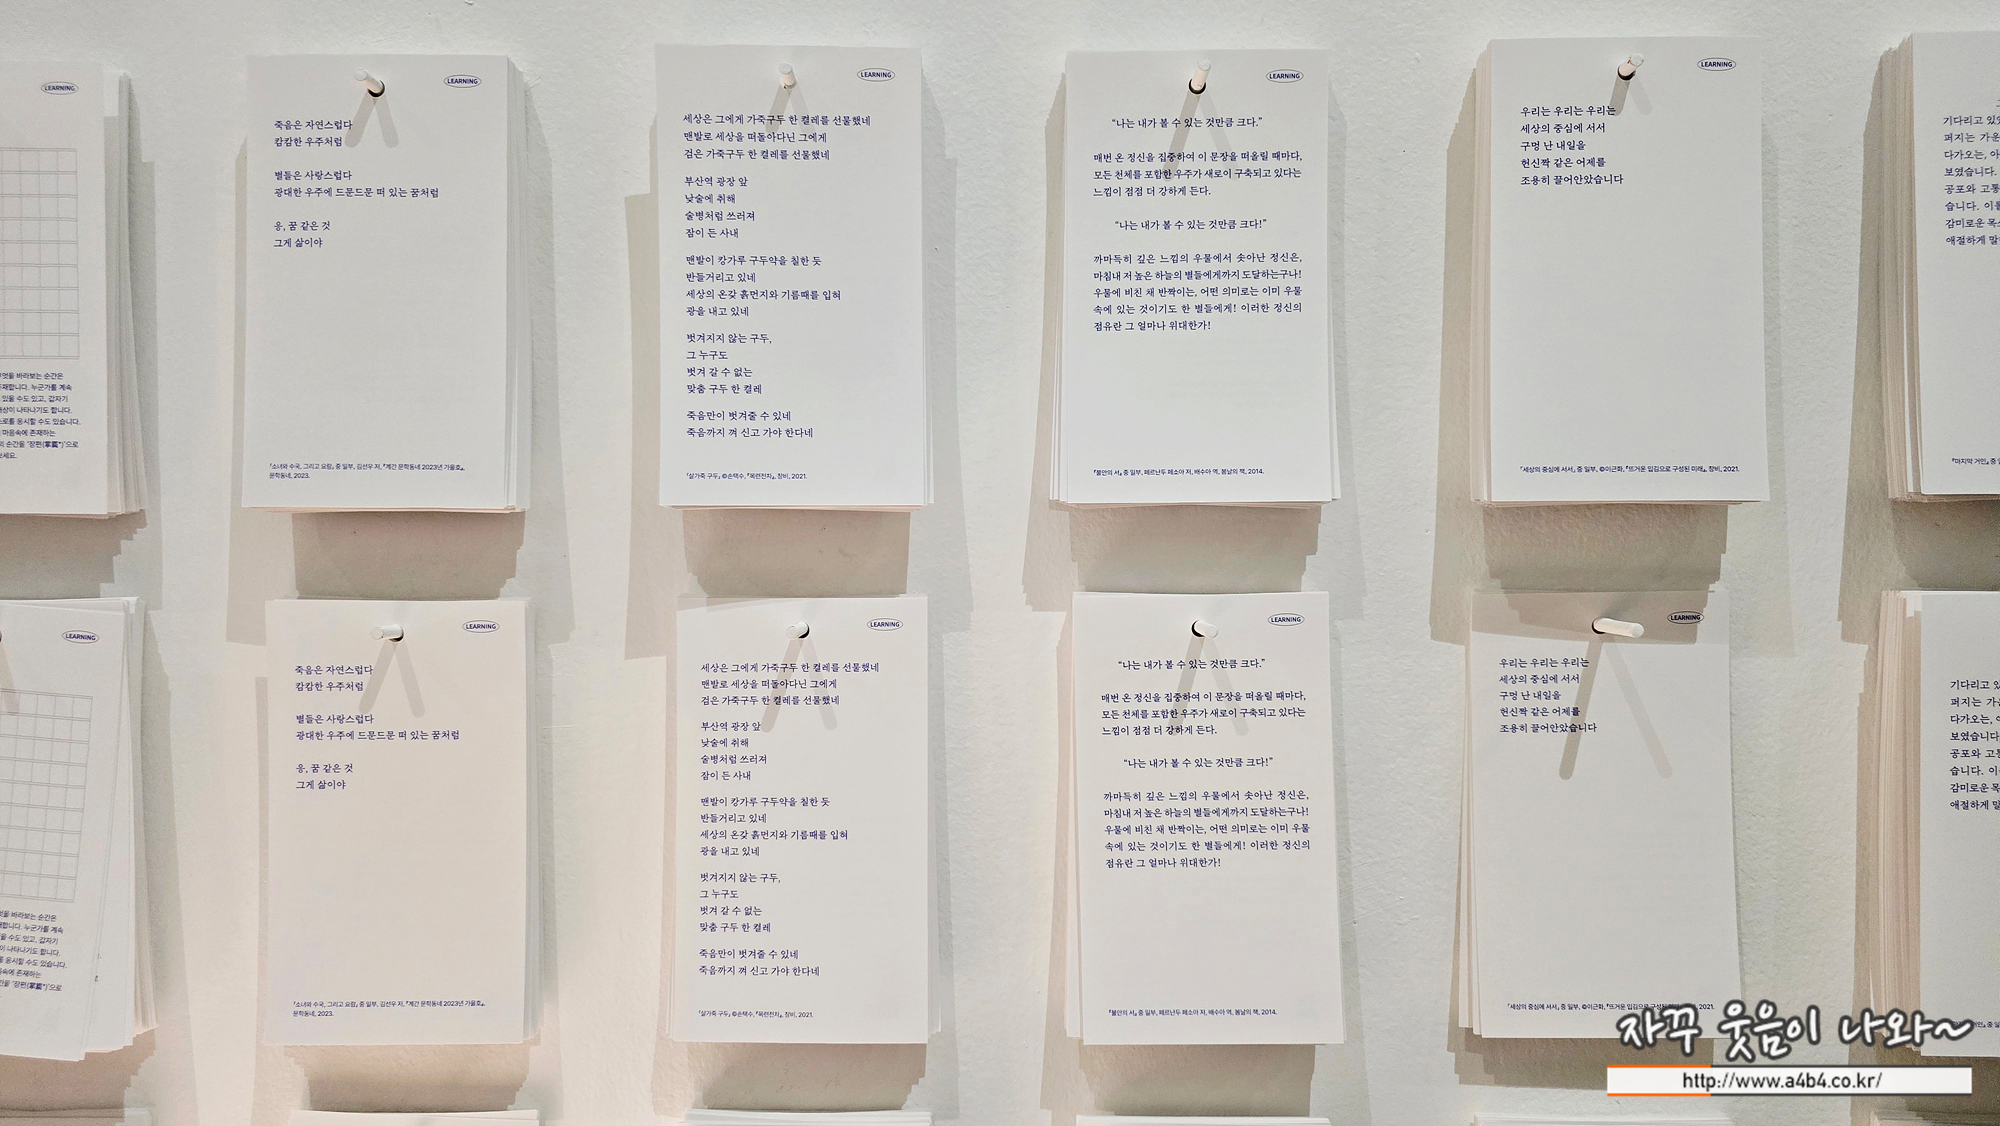 LEARNING
무엇을 바라보는 순간은
존재합니다. 누군가를 계속
있을 수도 있고, 갑자기
대상이 나타나기도 합니다.
스스로를 응시할 수도 있습니다.
마음속에 존재하는
순간을 '장편(掌篇*)'으로
LEARNING
죽음은 자연스럽다
캄캄한 우주처럼
별들은 사랑스럽다
광대한 우주에 드문드문 떠 있는 꿈처럼
응, 꿈 같은 것
그게 삶이야
「소녀와 수국, 그리고 요람」 중 일부, 김선우 저, 『계간 문학동네 2023년 가을호』,
문학동네, 2023.
LEARNING
세상은 그에게 가죽구두 한 켤레를 선물했네
맨발로 세상을 떠돌아다닌 그에게
검은 가죽구두 한 켤레를 선물했네
부산역 광장 앞
낮술에 취해
술병처럼 쓰러져
잠이 든 사내
맨발이 캉가루 구두약을 칠한 듯
반들거리고 있네
세상의 온갖 흙먼지와 기름때를 입혀
광을 내고 있네
벗겨지지 않는 구두,
그 누구도
벗겨 갈 수 없는
맞춤 구두 한 켤레
죽음만이 벗겨줄 수 있네
죽음까지 껴 신고 가야 한다네
「살가죽 구두」 ©손택수, 『목련전차』, 창비, 2021.
LEARNING
“나는 내가 볼 수 있는 것만큼 크다.”
매번 온 정신을 집중하여 이 문장을 떠올릴 때마다,
모든 천체를 포함한 우주가 새로이 구축되고 있다는
느낌이 점점 더 강하게 든다.
“나는 내가 볼 수 있는 것만큼 크다!”
까마득히 깊은 느낌의 우물에서 솟아난 정신은,
마침내 저 높은 하늘의 별들에게까지 도달하는구나!
우물에 비친 채 반짝이는, 어떤 의미로는 이미 우물
속에 있는 것이기도 한 별들에게! 이러한 정신의
점유란 그 얼마나 위대한가!
『불안의 서』 중 일부, 페르난두 페소아 저, 배수아 역, 봄날의 책, 2014.
LEARNING
우리는 우리는 우리는
세상의 중심에 서서
구멍 난 내일을
헌신짝 같은 어제를
조용히 끌어안았습니다
「세상의 중심에 서서」 중 일부, ©이근화, 『뜨거운 입김으로 구성된 미래』, 창비, 2021.
기다리고 있었
퍼지는 가운
다가오는, 아
보였습니다.
공포와 고통
습니다. 이를
감미로운 목소
애절하게 말
『마지막 거인』 중 일
LEARNING
무엇을 바라보는 순간은
합니다. 누군가를 계속
있을 수도 있고, 갑자기
이 나타나기도 합니다.
응시할 수도 있습니다.
마음속에 존재하는
순간을 '장편(掌篇*)'으로
LEARNING
죽음은 자연스럽다
캄캄한 우주처럼
별들은 사랑스럽다
광대한 우주에 드문드문 떠 있는 꿈처럼
응, 꿈 같은 것
그게 삶이야
「소녀와 수국, 그리고 요람」 중 일부, 김선우 저, 『계간 문학동네 2023년 가을호』,
문학동네, 2023.
LEARNING
세상은 그에게 가죽구두 한 켤레를 선물했네
맨발로 세상을 떠돌아다닌 그에게
검은 가죽구두 한 켤레를 선물했네
부산역 광장 앞
낮술에 취해
술병처럼 쓰러져
잠이 든 사내
맨발이 캉가루 구두약을 칠한 듯
반들거리고 있네
세상의 온갖 흙먼지와 기름때를 입혀
광을 내고 있네
벗겨지지 않는 구두,
그 누구도
벗겨 갈 수 없는
맞춤 구두 한 켤레
죽음만이 벗겨줄 수 있네
죽음까지 껴 신고 가야 한다네
「살가죽 구두」 ©손택수, 『목련전차』, 창비, 2021.
LEARNING
“나는 내가 볼 수 있는 것만큼 크다.”
매번 온 정신을 집중하여 이 문장을 떠올릴 때마다,
모든 천체를 포함한 우주가 새로이 구축되고 있다는
느낌이 점점 더 강하게 든다.
“나는 내가 볼 수 있는 것만큼 크다!”
까마득히 깊은 느낌의 우물에서 솟아난 정신은,
마침내 저 높은 하늘의 별들에게까지 도달하는구나!
우물에 비친 채 반짝이는, 어떤 의미로는 이미 우물
속에 있는 것이기도 한 별들에게! 이러한 정신의
점유란 그 얼마나 위대한가!
『불안의 서』 중 일부, 페르난두 페소아 저, 배수아 역, 봄날의 책, 2014.
LEARNING
우리는 우리는 우리는
세상의 중심에 서서
구멍 난 내일을
헌신짝 같은 어제를
조용히 끌어안았습니다
「세상의 중심에 서서」 중 일부, ©이근화, 『뜨거운 입김으로 구성된 미래』, 창비, 2021.
기다리고 있
퍼지는 가운
다가오는,
보였습니다.
공포와 고
습니다. 이
감미로운 목
애절하게 말
자꾸 웃음이 나와~
http://www.a4b4.co.kr/